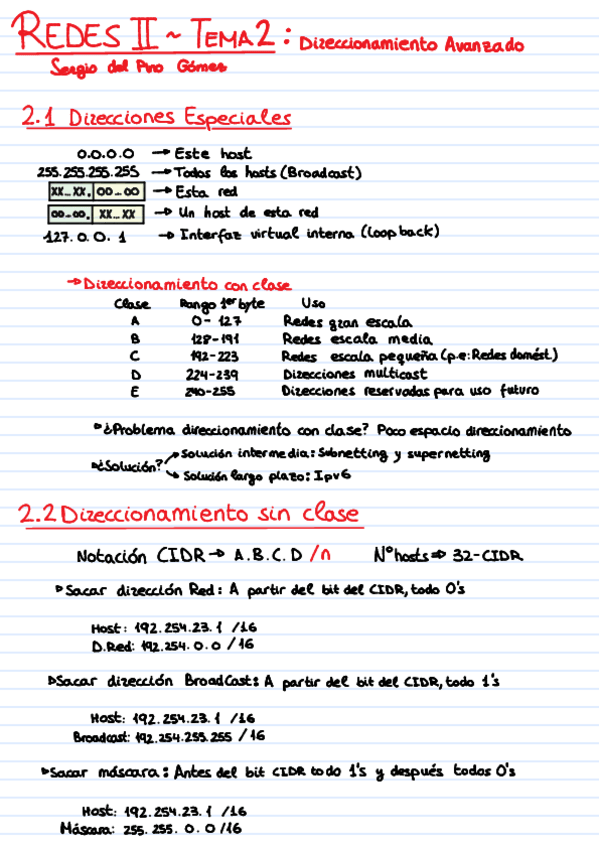 REDES II ~ TEMA 2 : Direccionamiento Avanzado
Sergio del Pino Gómez
2.1 Direcciones Especiales
0.0.0.0 → Este host
255.255.255.255 → Todos los hosts (Broadcast)
XX...XX. 00...00 → Esta red
00...00. XX...XX → Un host de esta red
127.0.0.1 → Interfaz virtual interna (loopback)
→ Direccionamiento con clase
Clase Rango 1er byte Uso
A 0-127 Redes gran escala
B 128-191 Redes escala media
C 192-223 Redes escala pequeña (p.e: Redes domést.)
D 224-239 Direcciones multicast
E 240-255 Direcciones reservadas para uso futuro
¿Problema direccionamiento con clase? Poco espacio direccionamiento
Solución intermedia: Subnetting y supernetting
¿Solución?
Solución largo plazo: Ipv6
2.2 Direccionamiento sin clase
Notación CIDR → A.B.C.D /n Nº hosts ⇒ 32-CIDR
Sacar dirección Red: A partir del bit del CIDR, todo 0's
Host: 192.254.23.1 /16
D.Red: 192.254.0.0 /16
Sacar dirección BroadCast: A partir del bit del CIDR, todo 1's
Host: 192.254.23.1 /16
Broadcast: 192.254.255.255 /16
Sacar máscara: Antes del bit CIDR todo 1's y después todos 0's
Host: 192.254.23.1 /16
Máscara: 255.255.0.0 /16